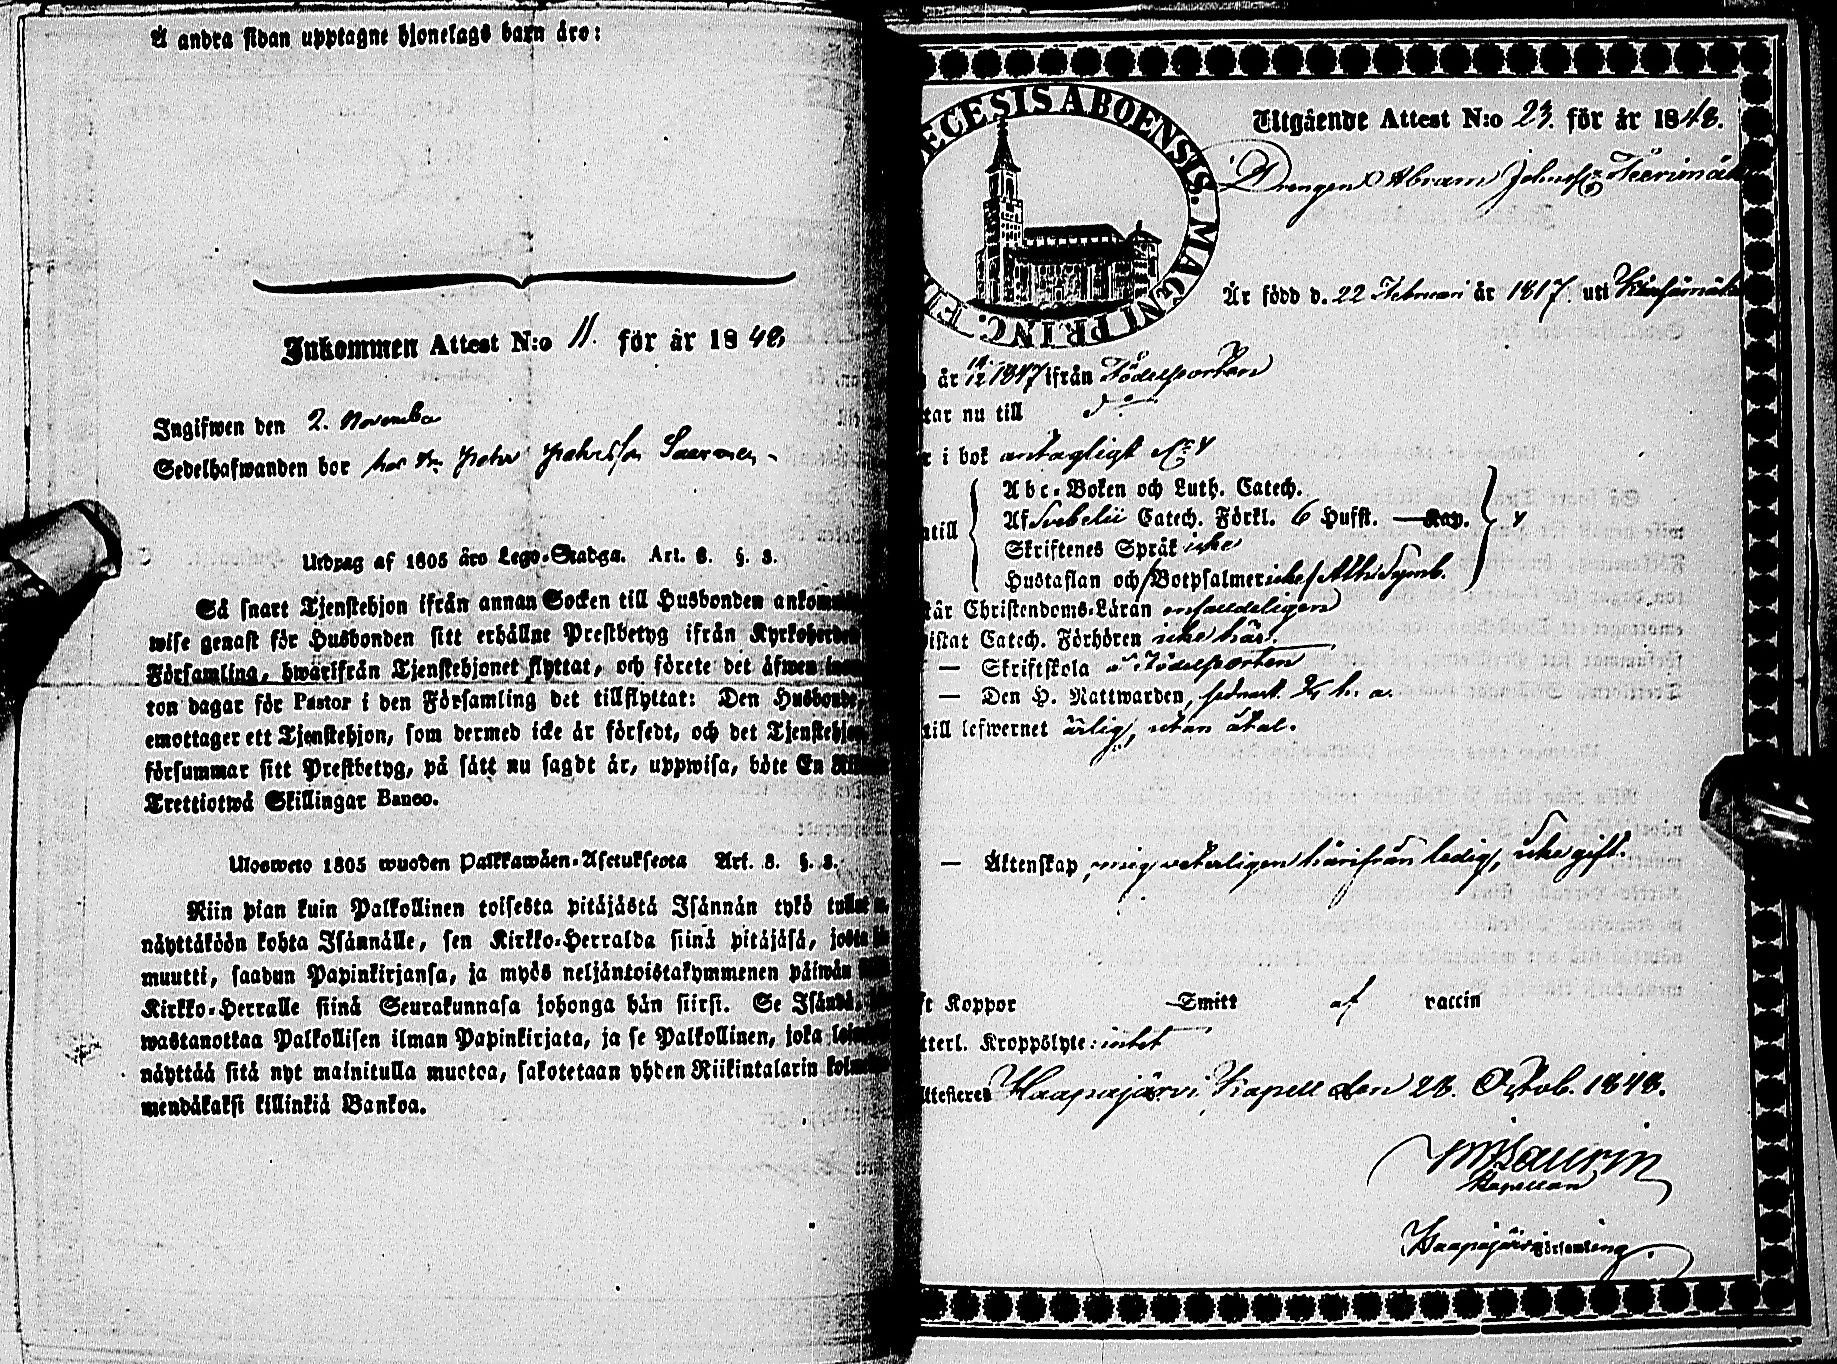 Å andra sidan upptagne hjonelags barn äro:
Inkommen Attest N:o 11. för år 1848
Ingifwen den 2. November
Sedelhafwanden bor hos Peter Petersson
Utdrag af 1805 års Lego-Stadga. Art. 3. §. 3.
Så snart Tjenstehjon ifrån annan Socken till Husbonden
wise genast för Husbonden sitt erhållne Prestbetyg ifrån
Församling, hwarifrån Tjenstehjonet flyttat, och förete det äfwen
ton dagar för Pastor i den Församling det tillflyttat: Den
emottager ett Tjenstehjon, som dermed icke är försedt, och det
försummar sitt Prestbetyg, på sätt nu sagdt är, uppwisa, böte En
Trettiotwå Skillingar Banco.
Ulosweto 1805 wuoden Palkkawäen-Asetuksesta Art. 3. §. 3.
Niin pian kuin Palkollinen toisesta pitäjästä Isännän tykö
näyttäköön kohta Isännälle, sen Kirkko-Herralda siinä pitäjäsä,
muutti, saadun Papinkirjansa, ja myös neljäntoistakymmenen päiwän
Kirkko-Herralle siinä Seurakunnasa johonga hän siirsi. Se
wastanottaa Palkollisen ilman Papinkirjata, ja se Palkollinen, joka
näyttää sitä nyt mainitulla muotoa, sakotetaan yhden Riikintalarin
mendäkaksi killinkiä Bankoa.
ECESIS ABOENSIS. MAGNI PRINC. FI
Utgående Attest N:o 23. för år 1848.
Drengen Abram Johnsson
Är född d. 22 Februari år 1817. uti
år 1847 ifrån Födelseorten
tar nu till d:o
i bok antagligt
Abc-Boken och Luth. Catech.
Af Svebelii Catech. Förkl. 6 Hufst. Kap.
till
Skriftenes Språk icke
Hustaflan och Botpsalmer icke Ath. Symb.
tår Christendoms-Läran enfaldeligen
istat Catech. Förhören icke här.
— Skriftskola å Födelseorten
— Den H. Nattwarden, sednast
till lefwernet ärlig, utan åtal.
— Äktenskap, mig veterligen härifrån ledig, icke gift.
Koppor Smitt af vaccin
tterl. Kroppslyte: intet
ttesteres Haapajärvi Kapell den 28. Octob. 1848.
Kapellan
Haapajärvi församling.